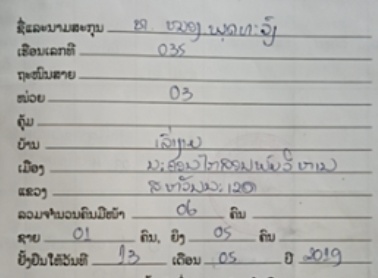 ຊື່ແລະນາມສະກຸນ ທ. ໝອງ ພຸດທະວົງ
ເຮືອນເລກທີ 035
ຖະໜົນສາຍ
ໜ່ວຍ 03
ຄຸ້ມ
ບ້ານ
ເມືອງ ນະຄອນໄກສອນພົມວິຫານ
ແຂວງ ສະຫວັນນະເຂດ
ລວມຈຳນວນຄົນມີໜ້າ 06 ຄົນ
ຊາຍ 01 ຄົນ, ຍິງ 05 ຄົນ
ຢັ້ງຢືນໃຫ້ວັນທີ 13 ເດືອນ 05 ປີ 2019